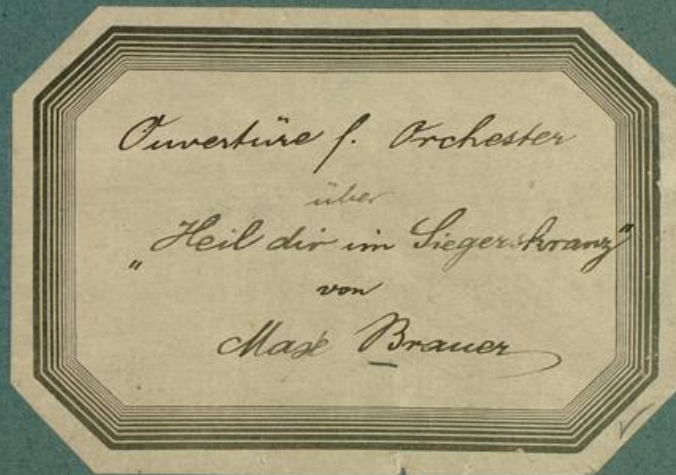 Ouvertüre f. Orchester
über
"Heil dir im Siegerskranz"
von
Max Brauer